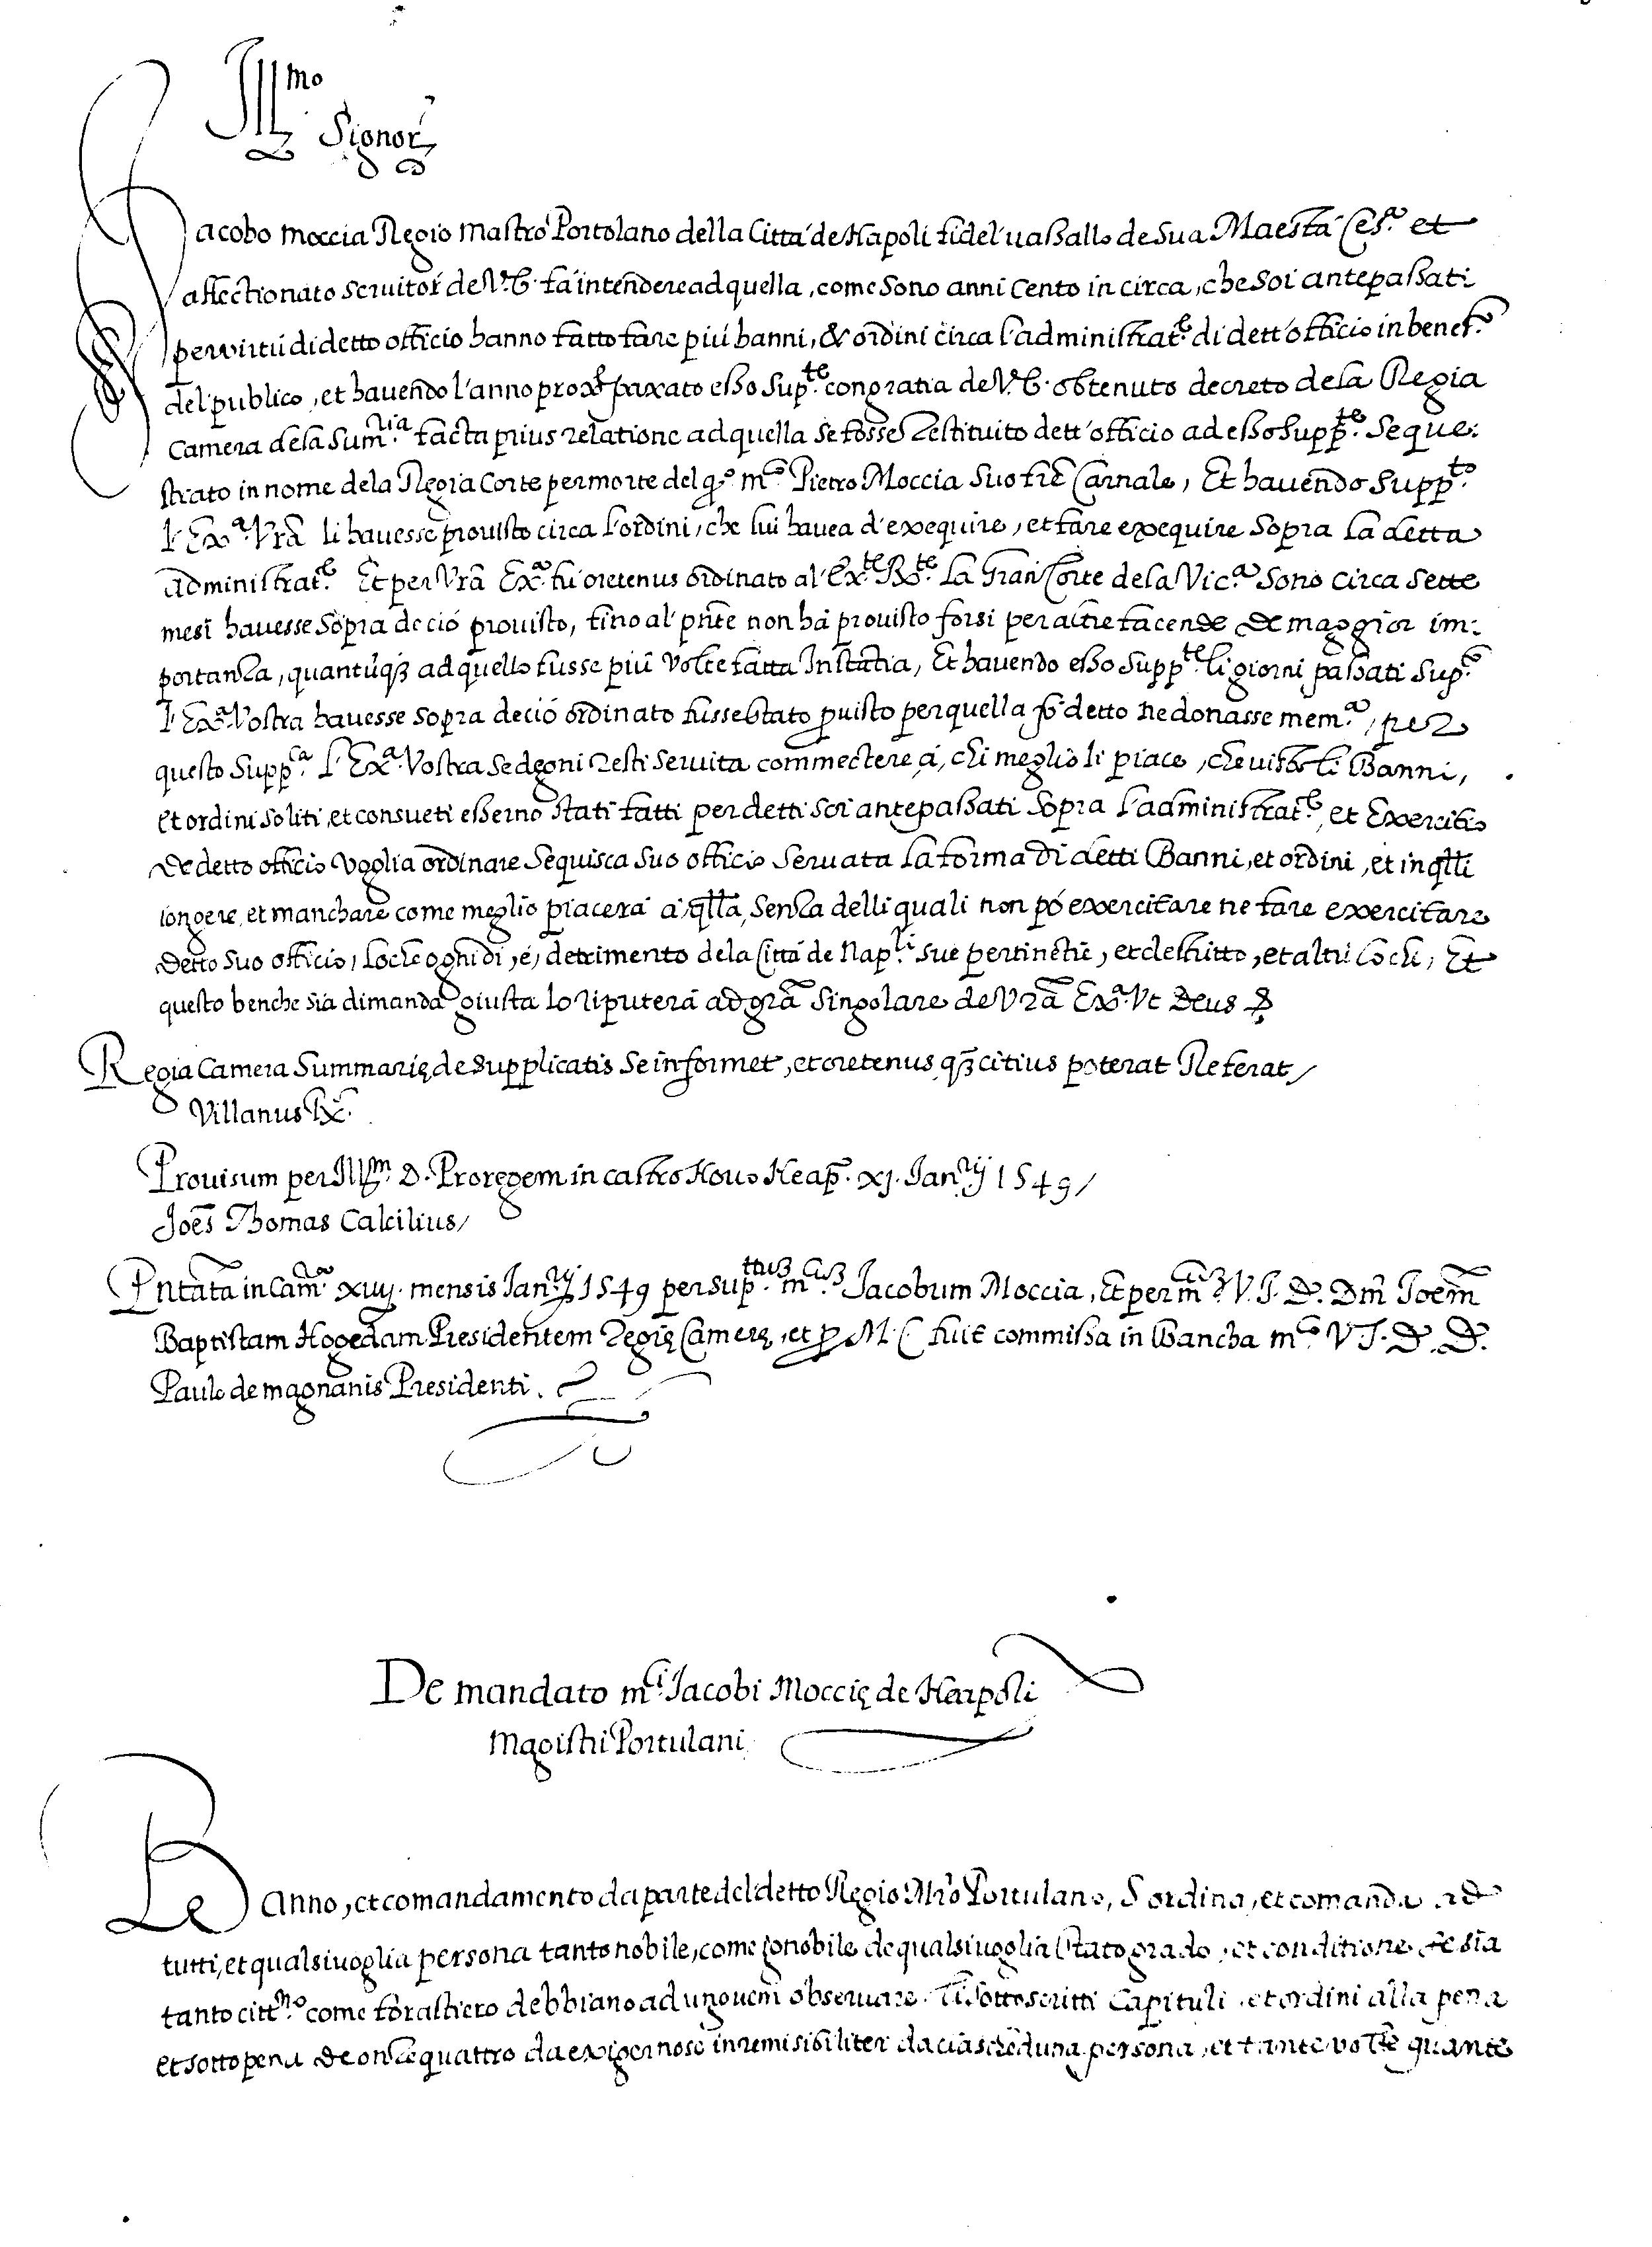 Ill.mo
Signor
Jacobo moccia Regio mastro Portolano della Citta de Napoli fidel uassallo de Sua Maestà Ces.a et
affectionato seruitor de V. E. fa intendere ad quella, come sono anni cento in circa, che soi antepassati
per uirtù di detto officio hanno fatto fare più banni, & ordini circa l'administrat.e di dett'officio in benef.o
del publico, et hauendo l'anno prox° paxato esso sup.te con gratia de V. E. obtenuto decreto de la Regia
Camera de la Sum.ria facta prius relatione ad quella se fosse restituito dett'officio ad esso supp.te seque:
strato in nome de la Regia Corte per morte del q.° m.co Pietro Moccia suo fre Carnale, Et hauendo supp.to
l'Ex.a Vrã li hauesse prouisto circa l'ordini, che lui hauea d'exequire, et fare exequire sopra la detta
administrat.e Et per Vrã Ex.a fu oretenus ordinato al Ex.te Ro.te la Gran Corte de la Vic.a sono circa sette
mesi hauesse sopra de ciò prouisto, fino al pñte non há prouisto forsi per altre facende de maggior im:
portanza, quantũq3 ad quello fusse più volte fatta Instãtia, Et hauendo esso supp.te li giorni passati sup.to
l'Ex.a Vostra hauesse sopra de ciò ordinato fusse stato puisto per quella fo detto ne donasse mem.a, per
questo supp.ca l'Ex.a Vostra se degni resti seruita commectere á, chi meglio li piace, che uisto li Banni,
et ordini soliti, et consueti esserno stati fatti per detti soi antepassati sopra l'administrat.e, et Exercitio
de detto officio voglia ordinare sequisca suo officio seruata la forma di detti Banni, et ordini, et in qlli
iongere, et manchare come meglio piacerà a qlla, senza delli quali non pò exercitare ne fare exercitare
detto suo officio, loche ogni dì, è, detrimento de la Città de Nap.li sue pertinẽtie, et destritto, et altri lochi, Et
questo benche sia dimanda giusta lo riputerà ad grã singolare de Vrã Ex.a Vt Deus
Regia Camera Summarię de supplicatis se informet, et oretenus q3 citius poterat Referat/
Villanus Rx.
Prouisum per Ill.m D. Proregem in castro Nouo Neap. xj. Jan.rij 1549/
Joẽs Thomas Calcilius/
Pntata in Camr̃a xuij. mensis Jan.rij 1549 per sup.ttu3 m.cu3 Jacobum Moccia, Et per m.cu3 V. J. D. Dm̃ Joem̃
Baptistam Hogedam Presidentem regię Camerę, et p M. C. fuit commissa in Bancha m.co V J. D. D.
Paulo de magnanis Presidenti.
De mandato m.ci Jacobi Moccię de Neapoli
Magistri Portulani
Banno, et comandamento da parte del detto Regio Mrõ Portulano, S'ordina, et comanda ad
tutti, et qualsiuoglia persona tanto nobile, come ignobile de qualsiuoglia stato grado, et conditione se sia
tanto citt.no come forastiero debbiano ad unguem obseruare li sottoscritti Capituli, et ordini alla pena
et sotto pena de onze quattro da exigernose inremisibiliter da ciascheduna persona, et tante volte quante